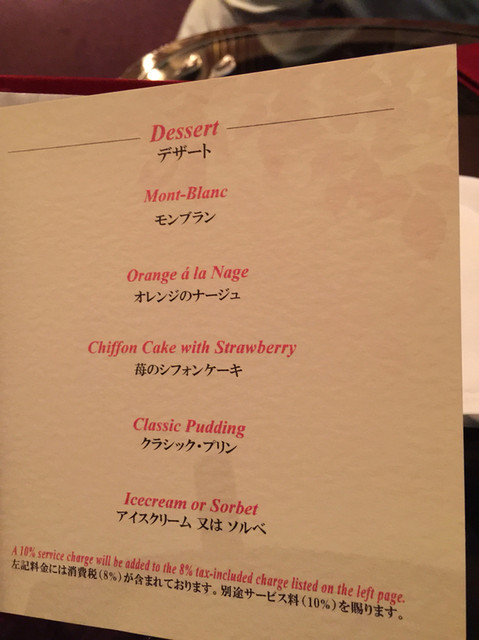 Dessert
デザート
Mont-Blanc
モンブラン
Orange á la Nage
オレンジのナージュ
Chiffon Cake with Strawberry
苺のシフォンケーキ
Classic Pudding
クラシック・プリン
Icecream or Sorbet
アイスクリーム 又は ソルベ
A 10% service charge will be added to the 8% tax-included charge listed on the left page.
左記料金には消費税(8%)が含まれております。別途サービス料(10%)を賜ります。